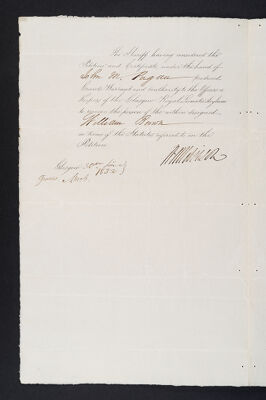 The Sheriff having considered the
Petition and Certificate under the hand of
John M. Pagan produced
Grants Warrant and authority to the Officers &
Keepers of the Glasgow Royal Lunatic Asylum
to receive the person of the within designed
William Brown
in terms of the Statutes referred to in the
Petition
Glasgow 30th
1832